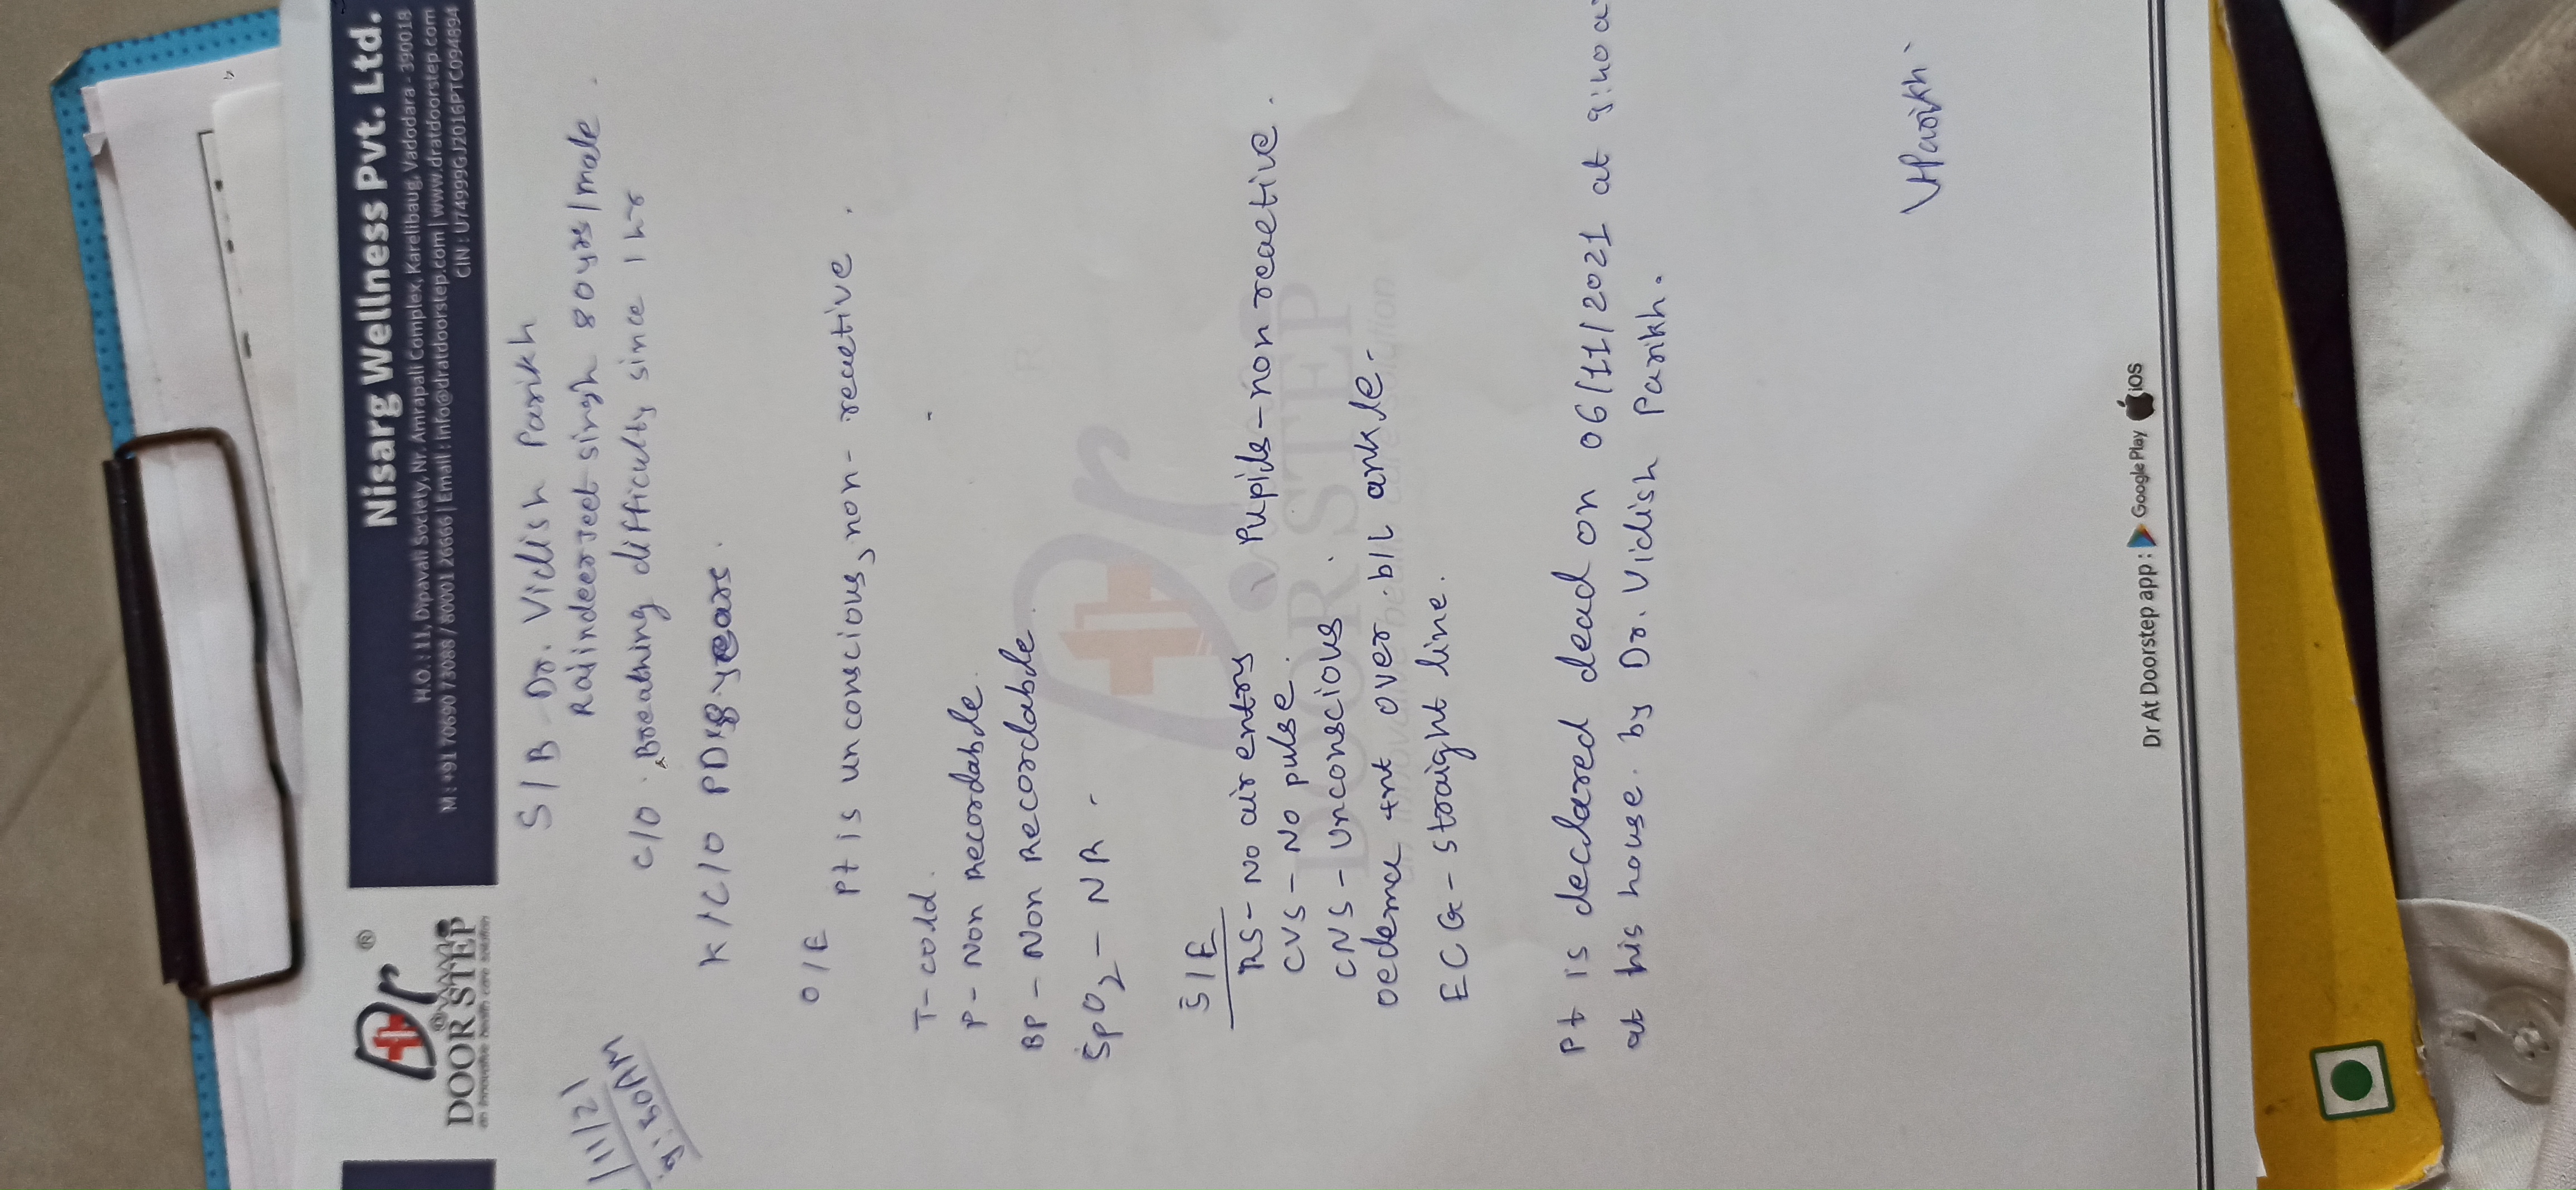 Dr ®
DOOR STEP
an innovative health care solution
Nisarg Wellness Pvt. Ltd.
H.O. : 11, Dipavali Society, Nr. Amrapali Complex, Karelibaug, Vadodara - 390018
M : +91 70690 73088 / 80001 26666 | Email : info@dratdoorstep.com | www.dratdoorstep.com
CIN : U74999GJ2016PTC094894
/11/21
9:50AM
S/B Dr. Vidish Parikh
Rajindeerjeet singh 80yrs/male
C/O Breathing difficulty since 1 hr
K/C/O PD 8 years.
O/E
Pt is unconscious, non-reactive.
T- cold.
P - Non Recordable.
BP - Non Recordable.
SpO2 - NR -
S/E
RS- No air entry Pupils - non reactive.
CVS - No pulse.
CNS - Unconscious.
oedema +nt over b/L ankle-
ECG - straight line.
Pt is declared dead on 06/11/2021 at 9:40 a
at his house. by Dr. Vidish Parikh.
VHParikh.
Dr
DOOR STEP
an innovative health care solution
Dr At Doorstep app : Google Play iOS